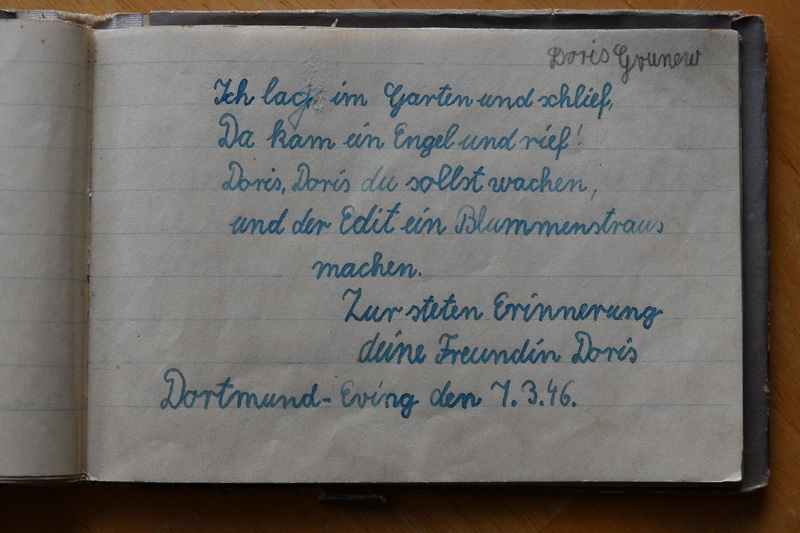 Doris Grunew
Ich lag im Garten und schlief,
Da kam ein Engel und rief!
Doris, Doris du sollst wachen,
und der Edit ein Blummenstraus
machen.
Zur steten Erinnerung
deine Freundin Doris
Dortmund-Eving den 7.3.46.